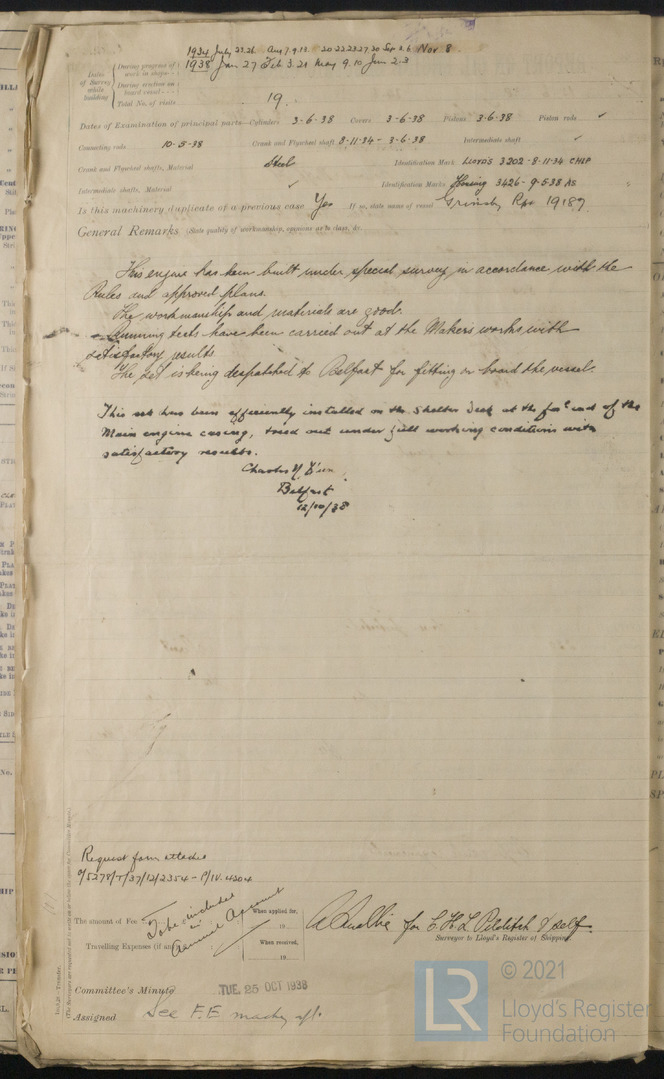 1934 July 23.26. Aug 7.9.13. 20 22 23 27 30 Sep 2.6 Nov 8.
Dates of Survey while building
During progress of work in shops - -
1938 Jan 27 Feb 3.21 May 9.10 Jun 2.3
During erection on board vessel - - -
Total No. of visits
19.
Dates of Examination of principal parts—Cylinders 3-6-38 Covers 3-6-38 Pistons 3-6-38 Piston rods ✓
Connecting rods 10-5-38 Crank and Flywheel shafts 8-11-34 - 3-6-38 Intermediate shafts ✓
Crank and Flywheel shafts, Material Steel Identification Mark LLOYD'S 3202-8-11-34
Intermediate shafts, Material ✓ Identification Marks 3426-9-5-38
Is this machinery duplicate of a previous case Yes. If so, state name of vessel Grimsby Rpt 19187
General Remarks (State quality of workmanship, opinions as to class, &c.
This engine has been built under special survey in accordance with the
Rules and approved plans.
The workmanship and materials are good.
Running tests have been carried out at the Makers works with
satisfactory results.
The set is being despatched to Belfast for fitting on board the vessel.
This set has been efficiently installed on the Shelter Deck at the for'd end of the
Main engine casing, tried out under full working conditions with
satisfactory results.
Charles
Belfast
12/10/38
Request form attached
The amount of Fee
To be included in General Account
When applied for,
19
Travelling Expenses (if any)
When received,
19
for C.H.L. Pilditch & self.
Surveyor to Lloyd's Register of Shipping.
Committee's Minute
TUE. 25 OCT 1938
Assigned See F.E. machy rpt.
LR
© 2021
Lloyd's Register
Foundation